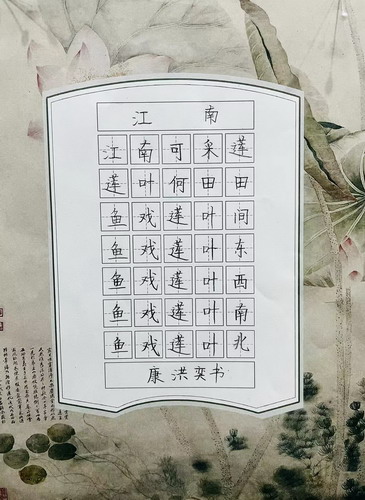 江南
江南可采莲
莲叶何田田
鱼戏莲叶间
鱼戏莲叶东
鱼戏莲叶西
鱼戏莲叶南
鱼戏莲叶北
康洪奕书